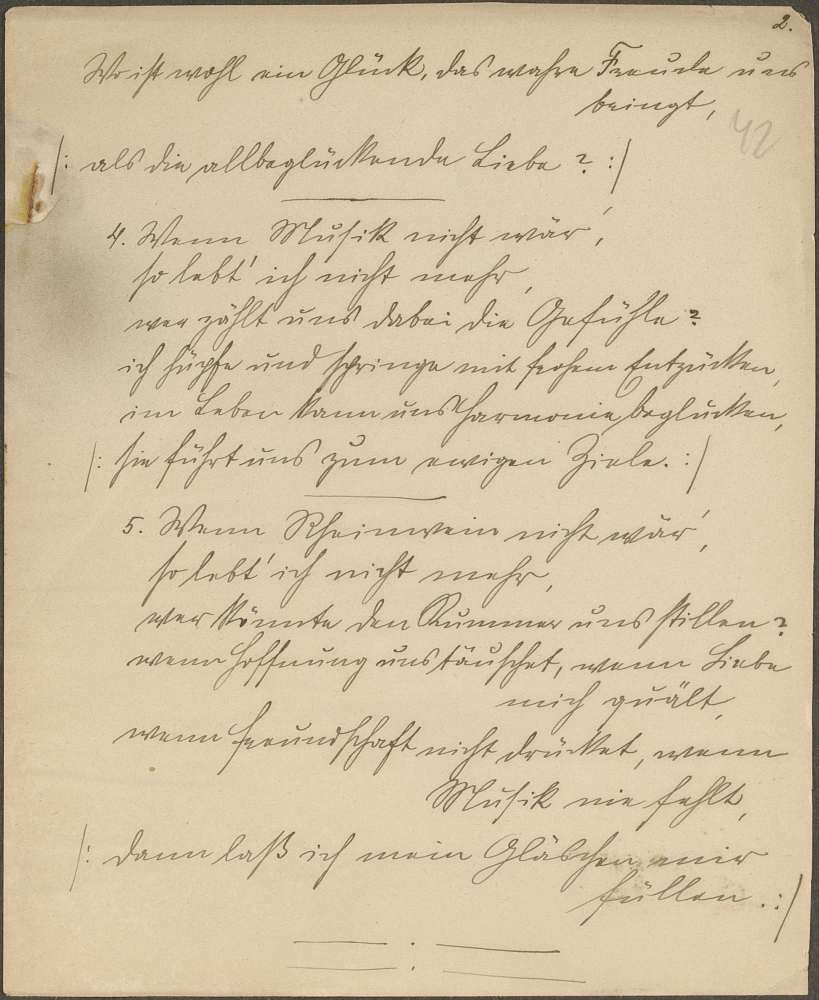 2.
Wo ist wohl ein Glück, das wahre Freude uns
bringt,
42
|: als die allbeglückende Liebe? :|
4. Wenn Musik nicht wär',
so lebt' ich nicht mehr,
wer zählt uns dabei die Gefühle?
ich hüpfe und springe mit frohem Entzücken,
im Leben kann uns Harmonie beglücken,
|: sie führt uns zum ewigen Ziele. :|
5. Wenn Rheinwein nicht wär',
so lebt' ich nicht mehr,
wer könnte den Kummer uns stillen?
wenn Hoffnung uns täuschet, wenn Liebe
mich quält,
wenn Freundschaft nicht drücket, wenn
Musik nie fehlt,
|: dann laß ich mein Gläschen mir
füllen. :|